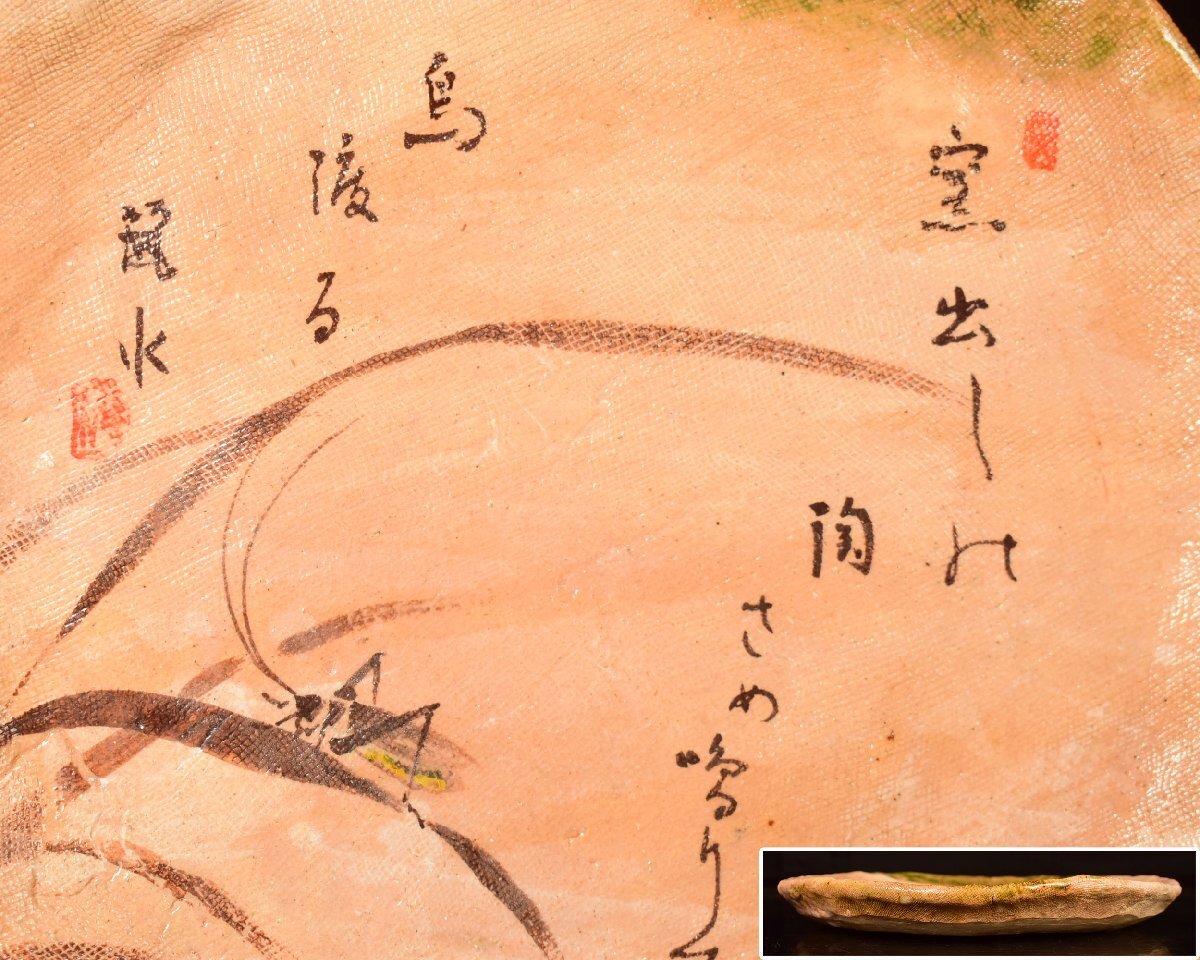 窯出しの
陶さめ鳴りて
鳥渡る
水